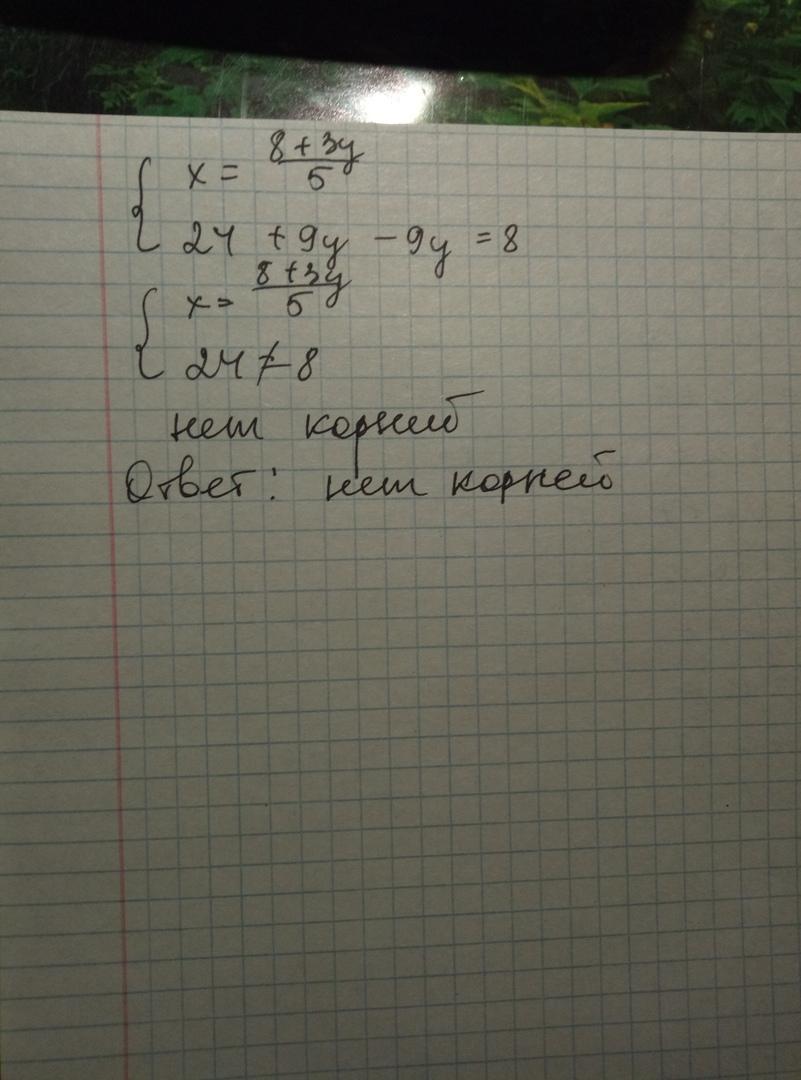 { x = (8 + 3y)/5
24 + 9y - 9y = 8
{ x = (8 + 3y)/5
24 ≠ 8
нет корней
Ответ: нет корней